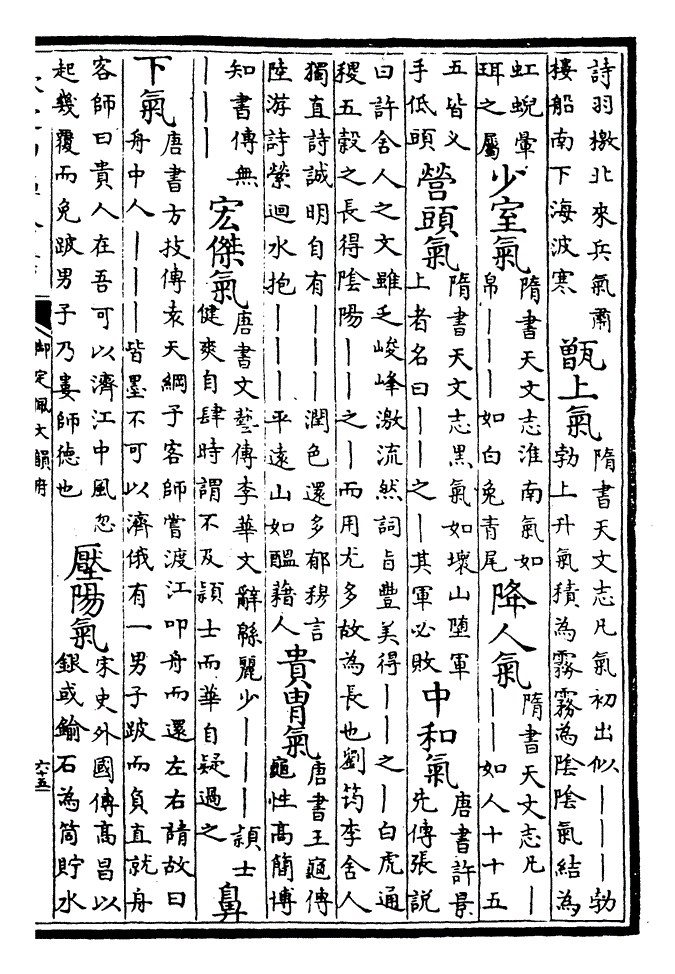 詩羽檄北來兵氣肅
樓船南下海波寒
甑上氣
隋書天文志凡氣初出似｜｜｜勃
勃上升氣積為霧霧為陰陰氣結為
虹蜺暈
珥之屬
少室氣
隋書天文志淮南氣如
帛｜｜｜如白兔青尾
降人氣
隋書天文志凡｜
｜｜如人十十五
五皆义
手低頭
營頭氣
隋書天文志黑氣如壞山墮軍
上者名曰｜｜之｜其軍必敗
中和氣
唐書許景
先傳張說
曰許舍人之文雖乏峻峰激流然詞旨豐美得｜｜之｜白虎通
稷五穀之長得陰陽｜｜之｜而用尤多故為長也劉筠李舍人
獨直詩誠明自有｜｜｜潤色還多郁穆言
陸游詩縈迴水抱｜｜｜平遠山如醞藉人
貴胄氣
唐書王龜傳
龜性高簡博
知書傳無
｜｜｜
宏傑氣
唐書文藝傳李華文辭緜麗少｜｜｜頴士
健爽自肆時謂不及頴士而華自疑過之
鼻
下氣
唐書方技傳袁天綱子客師嘗渡江叩舟而還左右請故曰
舟中人｜｜｜皆墨不可以濟俄有一男子跛而負直就舟
客師曰貴人在吾可以濟江中風忽
起幾覆而免跛男子乃婁師德也
壓陽氣
宋史外國傳高昌以
銀或鍮石為筒貯水
御定佩文韻府
六十五